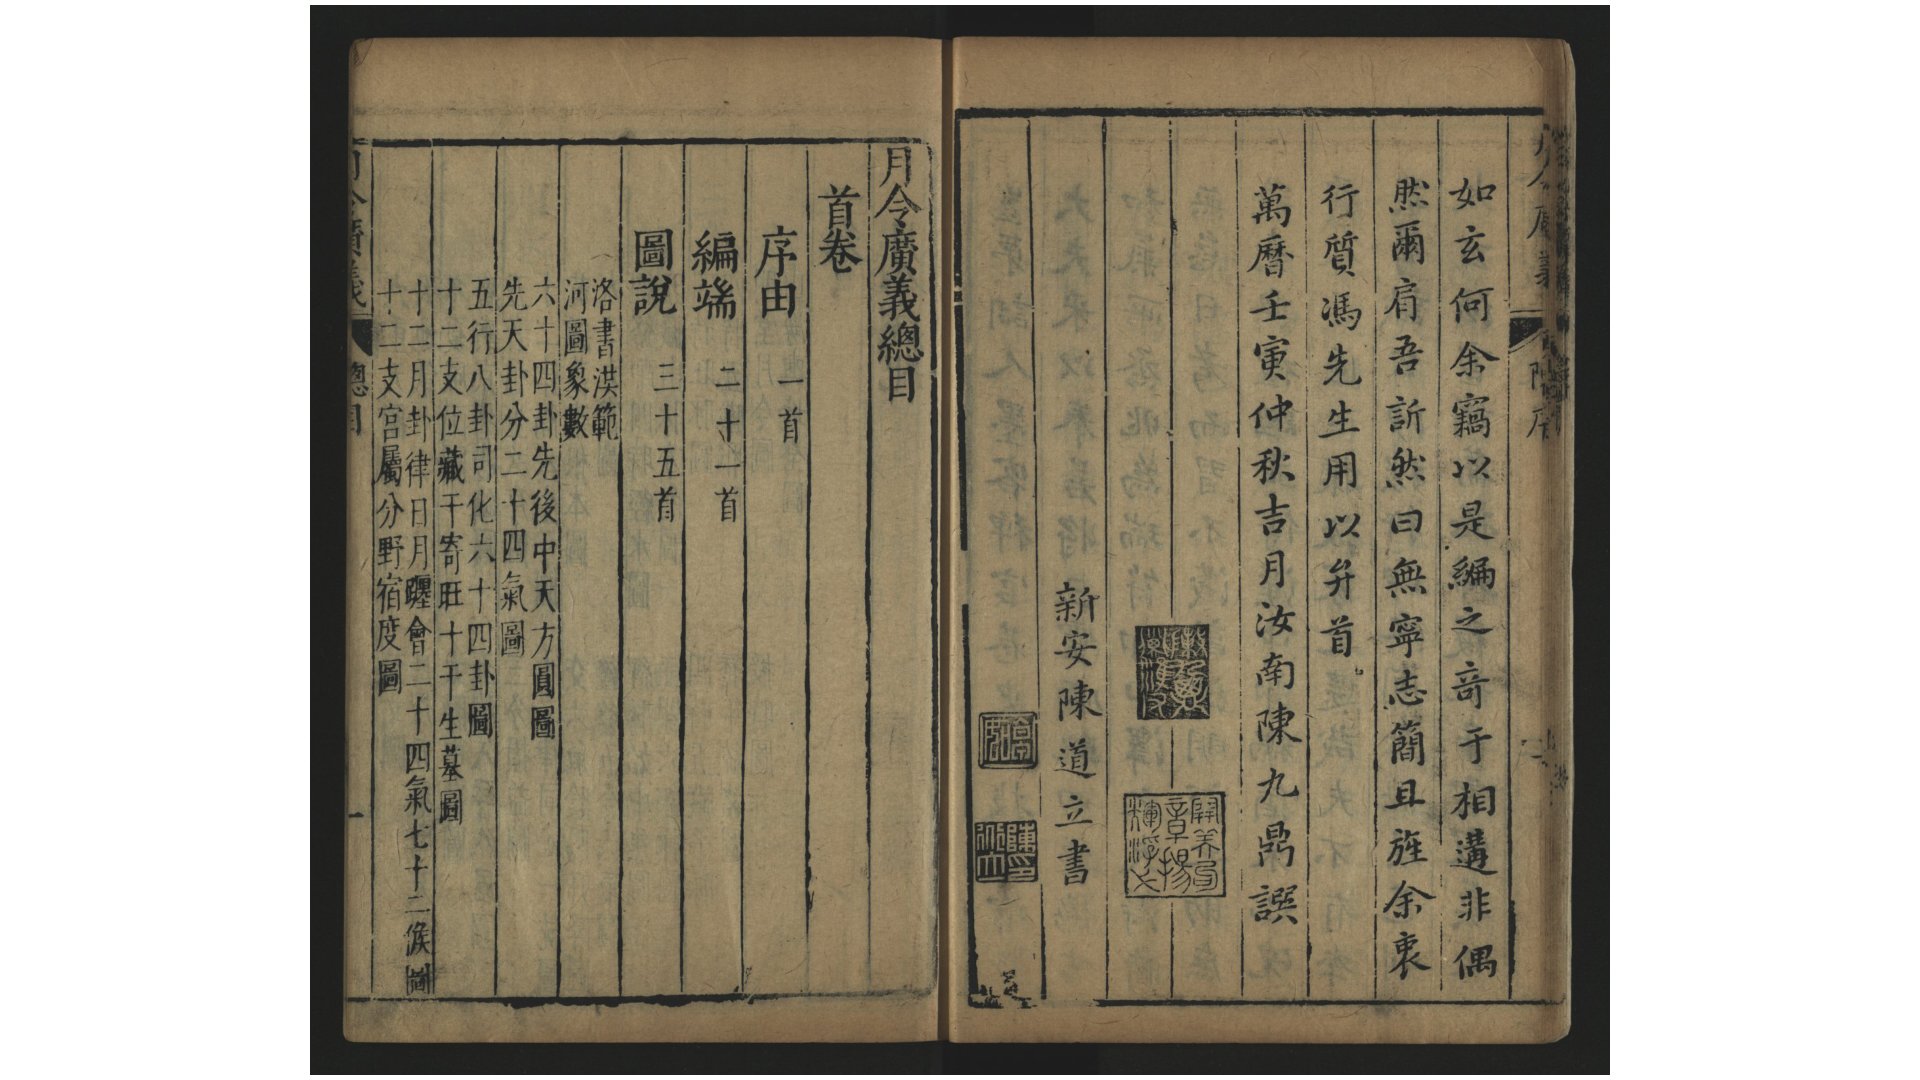 如玄何余竊以是編之奇于相遘非偶
然爾肩吾訢然曰無寧志簡且旌余衷
行質馮先生用以弁首
萬曆壬寅仲秋吉月汝南陳九鼎譔
新安陳道立書
月令廣義總目
首卷
序由 一首
編端 二十一首
圖說 三十五首
洛書洪範
河圖象數
六十四卦先後中天方圓圖
先天卦分二十四氣圖
五行八卦司化六十四卦圖
十二支位藏干寄旺十干生墓圖
十二月卦律日月躔會二十四氣七十二候圖
十二支宮屬分野宿度圖
月令廣義 總目 一